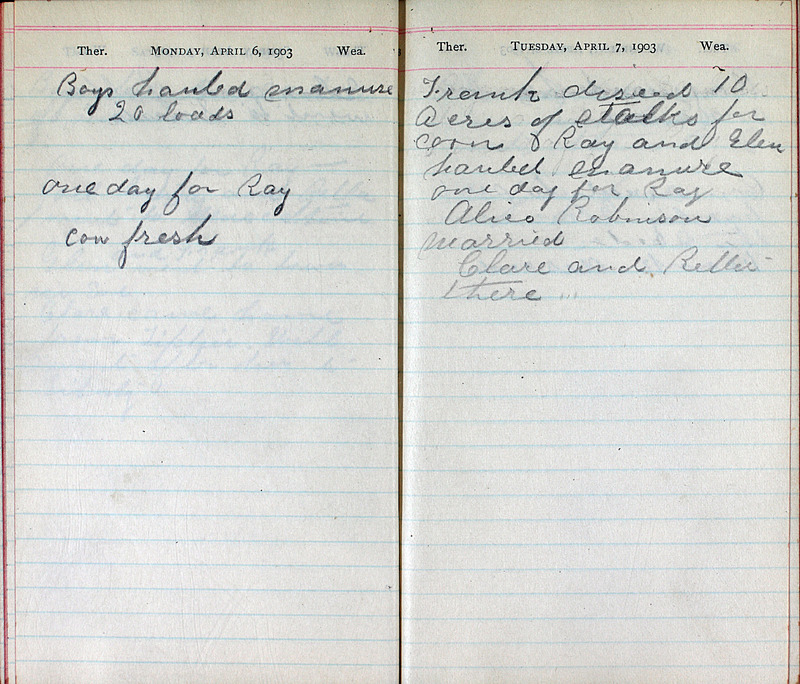 Ther. MONDAY, APRIL 6, 1903 Wea.
Boys hauled manure
20 loads
one day for Ray
cow fresh
Ther. TUESDAY, APRIL 7, 1903 Wea.
Frank disced 10
Acres of stalks for
corn & Ray and Glen
hauled manure
one day for Ray
Alice Robinson
married
Clare and
there